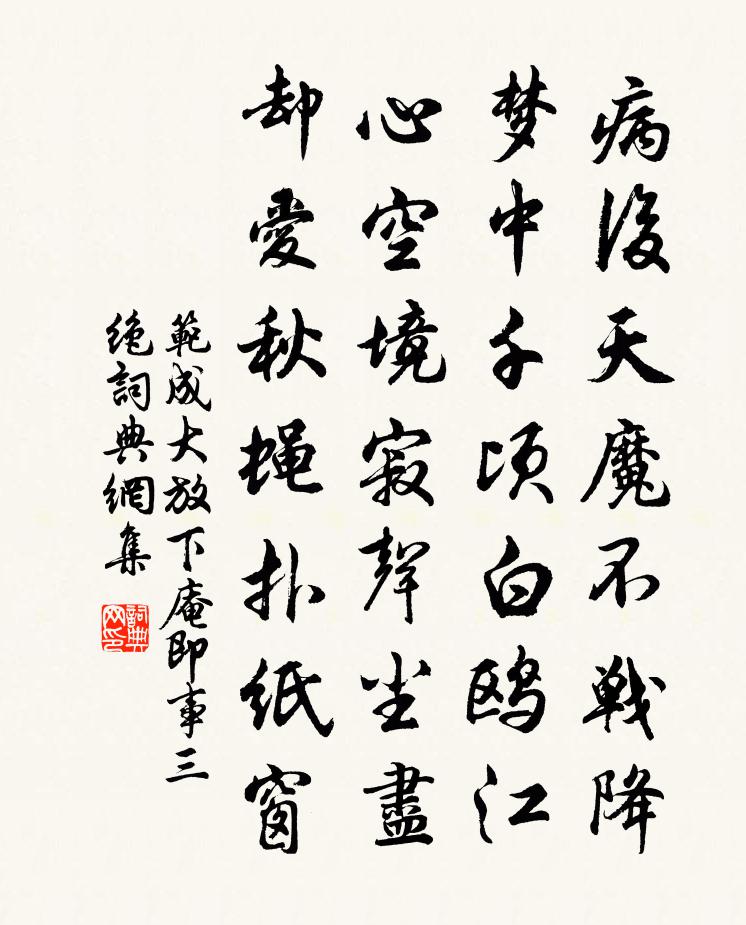 病後天魔不戦降
梦中千頃白鸥江
心空境寂聲尘盡
却愛秋蝇扑紙窗
範成大放下庵即事三
绝詞典網集
詞典网印